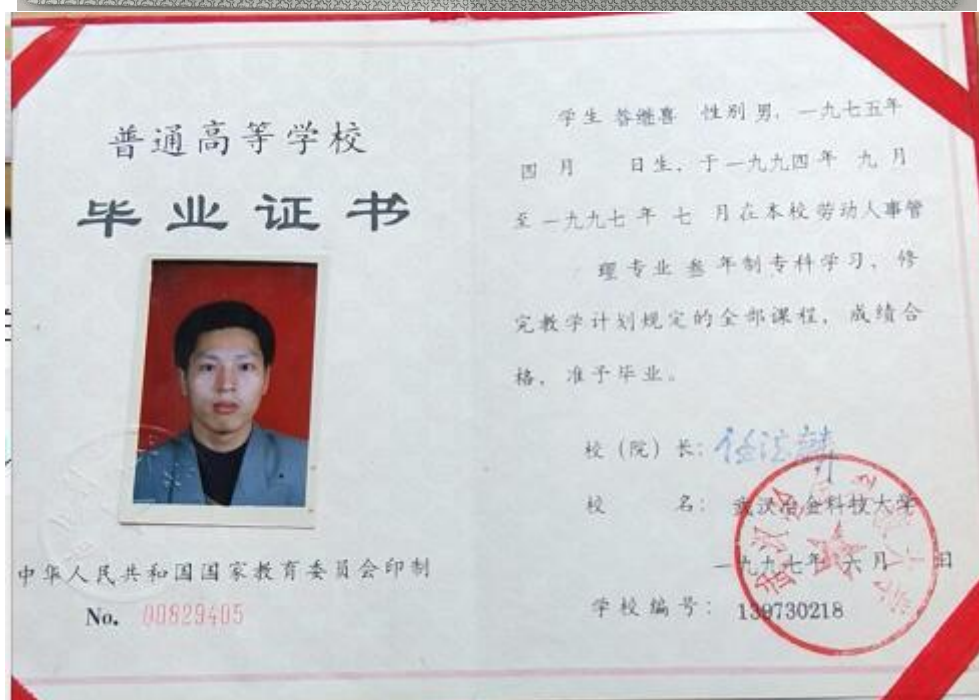 普通高等学校
毕业证书
中华人民共和国国家教育委员会印制
No. 00829405
学生 昝继喜 性别 男，一九七五年
四 月 日生，于一九九四年 九 月
至一九九七年 七 月在本校 劳动人事管
理 专业 叁 年制专科学习，修
完教学计划规定的全部课程，成绩合
格，准予毕业。
校（院）长：
校 名：武汉冶金科技大学
一九九七年 六 月 日
学校编号：139730218